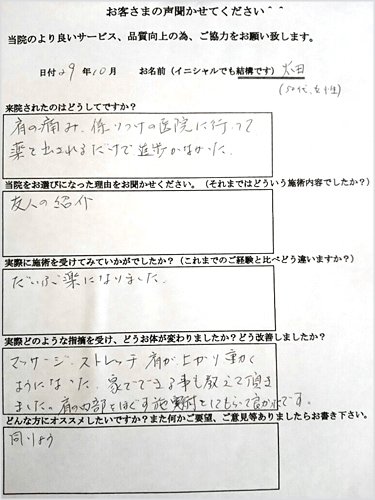 お客さまの声聞かせてください＾＾
当院のより良いサービス、品質向上の為、ご協力をお願い致します。
日付 29年10月　お名前（イニシャルでも結構です）太田
（50代、女性）
来院されたのはどうしてですか？
肩の痛み、掛りつけの医院に行って
薬を出されるだけで進歩がなかった。
当院をお選びになった理由をお聞かせください。（それまではどういう施術内容でしたか？）
友人の紹介
実際に施術を受けてみていかがでしたか？（これまでのご経験と比べどう違いますか？）
だいぶ楽になりました。
実際どのような指摘を受け、どうお体が変わりましたか？どう改善しましたか？
マッサージ・ストレッチ 肩が上がり動く
ようになった。家でできる事も教えて頂き
ました。肩の内部をほぐす施術をしてもらって良かったです。
どんな方にオススメしたいですか？また何かご要望、ご意見等ありましたらお書き下さい。
同じよう